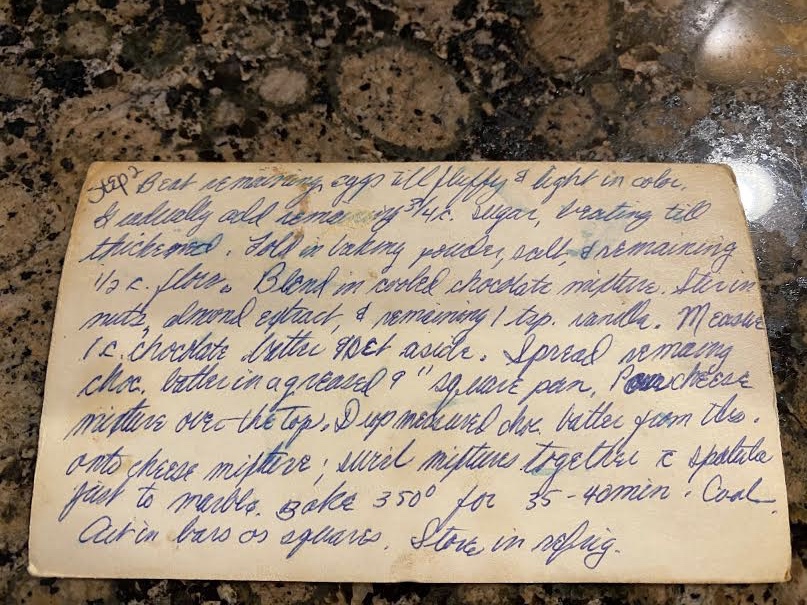 Step 2 Beat remaining eggs till fluffy & light in color.
Gradually add remaining 3/4 c. sugar, beating till
thickened. Fold in baking powder, salt, & remaining
1/2 c. flour. Blend in cooled chocolate mixture. Stir in
nuts, almond extract, & remaining 1 tsp. vanilla. Measure
1 c. chocolate batter & set aside. Spread remaing
choc. batter in a greased 9" square pan. Pour cheese
mixture over the top. Drop measured choc. batter from tbs.
onto cheese mixture; swirl mixtures together c̄ spatula
just to marble. Bake 350° for 35-40 min. Cool.
Cut in bars or squares. Store in refrig.